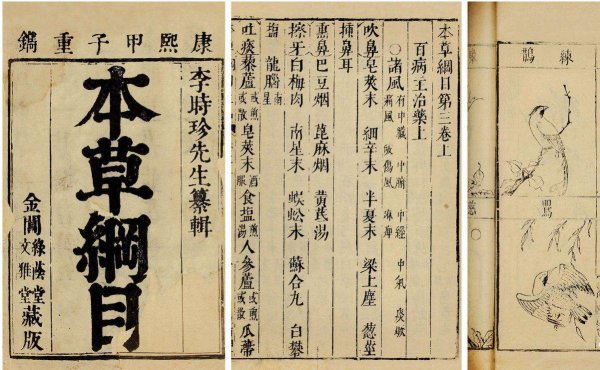 康熙甲子重鐫
李時珍先生纂輯
本草綱目
金閶綠蔭堂文雅堂藏版
本草綱目第三卷上
百病主治藥上
○諸風 有中臟 中腑 中經 中氣 痰厥
痛風 破傷風 麻痺
吹鼻皂莢末 細辛末 半夏末 梁上塵 葱莖
插鼻耳
熏鼻巴豆烟 蓖麻烟 黃芪湯
擦牙白梅肉 南星末 蜈蚣末 蘇合丸 白礬
塩 龍腦南星
吐痰藜蘆或煎或散 皂莢末酒服 食塩煎湯 人參蘆或煎或散 瓜蒂
練鵲